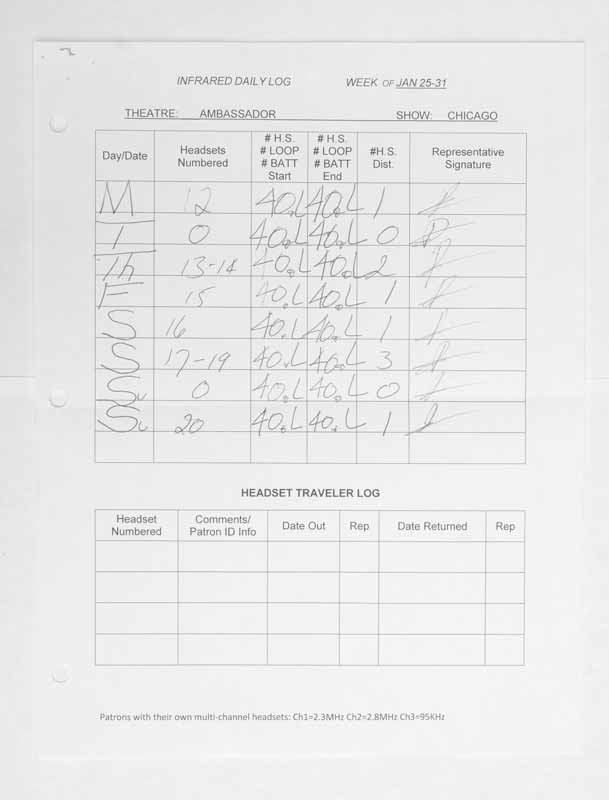 INFRARED DAILY LOG WEEK OF JAN 25-31
THEATRE: AMBASSADOR SHOW: CHICAGO
Day/Date Headsets Numbered # H.S. # LOOP # BATT Start # H.S. # LOOP # BATT End #H.S. Dist. Representative Signature
M 12 40 L 40 L 1
T 0 40 L 40 L 0
Th 13-14 40 L 40 L 2
F 15 40 L 40 L 1
S 16 40 L 40 L 1
S 17-19 40 L 40 L 3
Su 0 40 L 40 L 0
Su 20 40 L 40 L 1
HEADSET TRAVELER LOG
Headset Numbered Comments/ Patron ID Info Date Out Rep Date Returned Rep
Patrons with their own multi-channel headsets: Ch1=2.3MHz Ch2=2.8MHz Ch3=95KHz